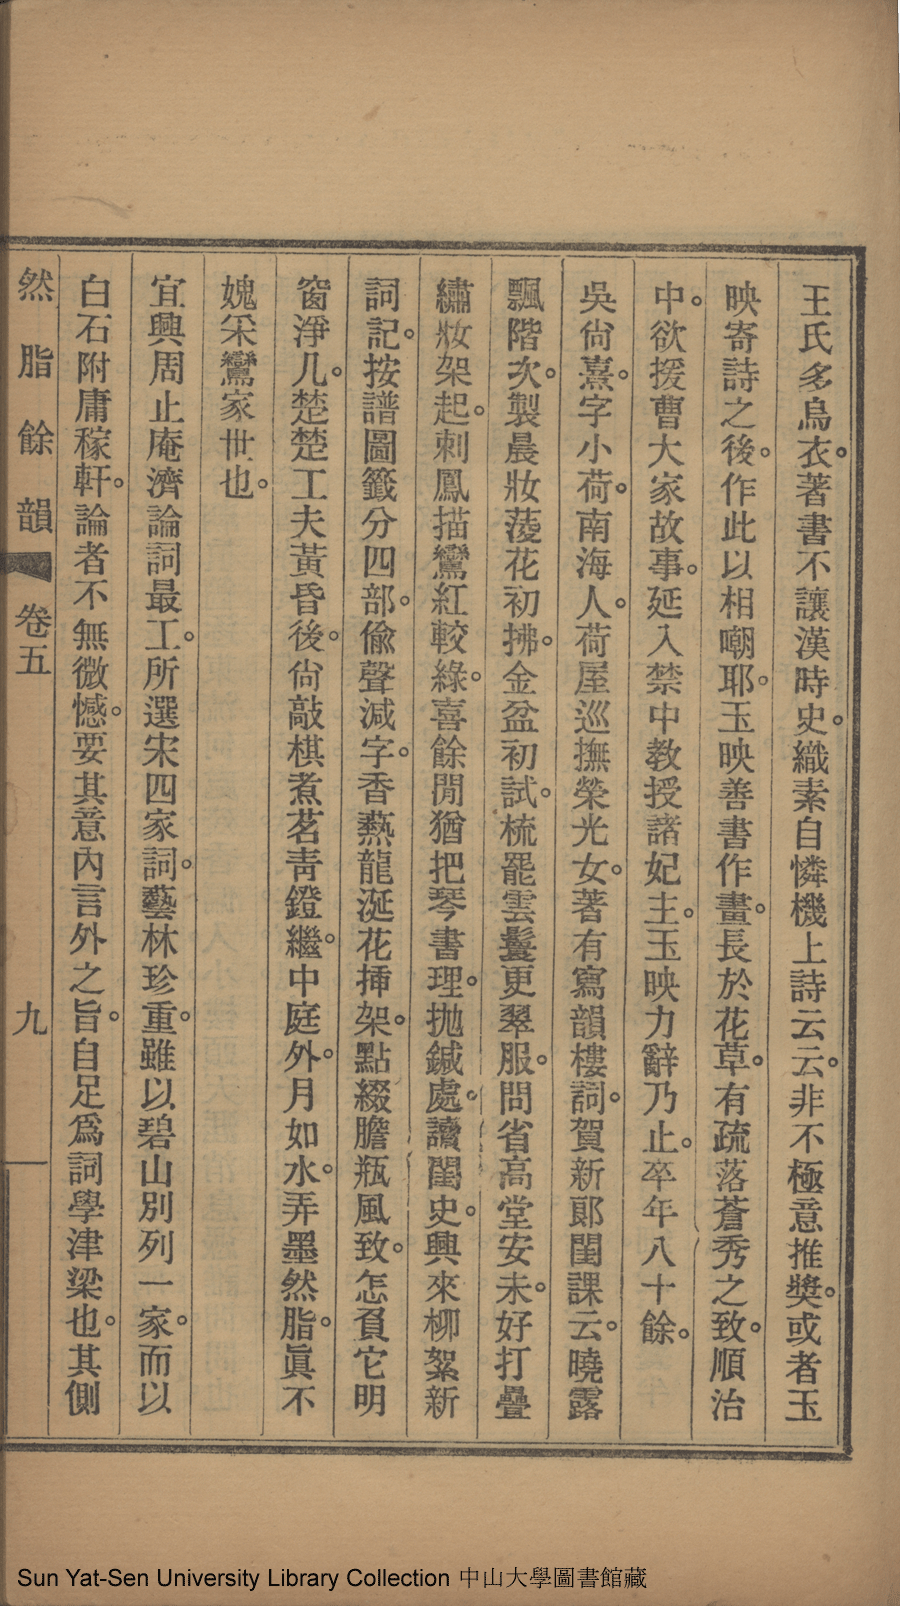 王氏多烏衣。著書不讓漢時史。織素自憐機上詩云云。非不極意推奬。或者玉
映寄詩之後。作此以相嘲耶。玉映善書作畫。長於花草。有疏落蒼秀之致。順治
中。欲援曹大家故事。延入禁中教授諸妃主。玉映力辭乃止。卒年八十餘。
吳尙熹。字小荷。南海人。荷屋巡撫榮光女。著有寫韻樓詞。賀新郞閨課云。曉露
飄階次。製晨妝蔆花初拂。金盆初試。梳罷雲鬟更翠服。問省高堂安未。好打疊
繡妝架起。刺鳳描鸞紅較綠。喜餘閒猶把琴書理。抛鍼處。讀閨史。興來柳絮新
詞記。按譜圖籤分四部。偸聲減字。香爇龍涎花揷架。點綴膽瓶風致。怎負它明
窗淨几。楚楚工夫黃昏後。尙敲棋煮茗靑鐙繼。中庭外。月如水。弄墨然脂。眞不
媿采鸞家世也。
宜興周止庵濟論詞最工。所選宋四家詞。藝林珍重。雖以碧山別列一家。而以
白石附庸稼軒。論者不無微憾。要其意內言外之旨。自足爲詞學津梁也。其側
然脂餘韻 卷五 九
Sun Yat-Sen University Library Collection 中山大學圖書館藏